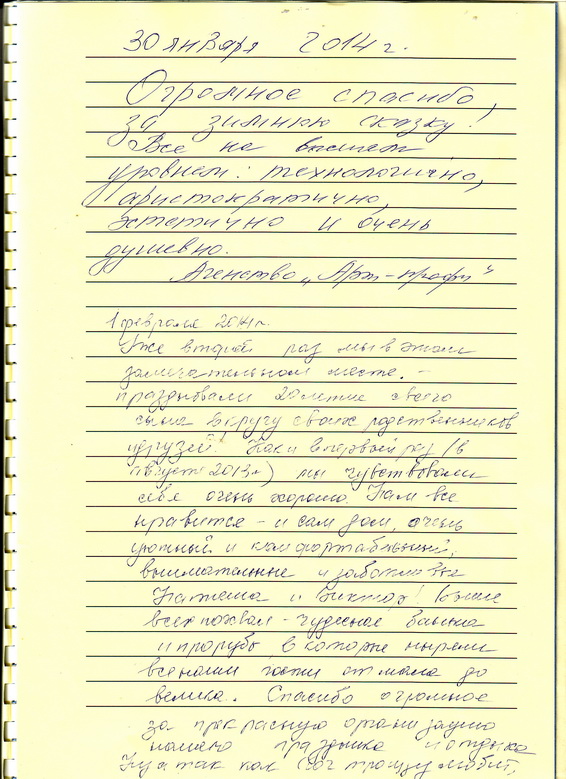 30 января 2014 г.
Огромное спасибо,
за зимнюю сказку!
Все на высшем
уровнем: технологично,
аристократично,
эстетично и очень
душевно.
Агенство „Арт-профи"
1 февраля 2014г.
Уже второй раз мы в этом
замечательном месте. -
праздновали 20летие своего
сына в кругу своих родственников
и друзей! Как и в первый раз (в
августе 2013г) мы чувствовали
себя очень хорошо. Нам все
нравится - и сам дом, очень
уютный и комфортабельный,
внимательные и заботливые
и Виктор! Выше
всех похвал - чудесная банька
и прорубь, в которые ныряли
все наши гости от мала до
велика. Спасибо огромное
за прекрасную организацию
нашего праздника и отдыха
Ну а так как Бог троицу любит,